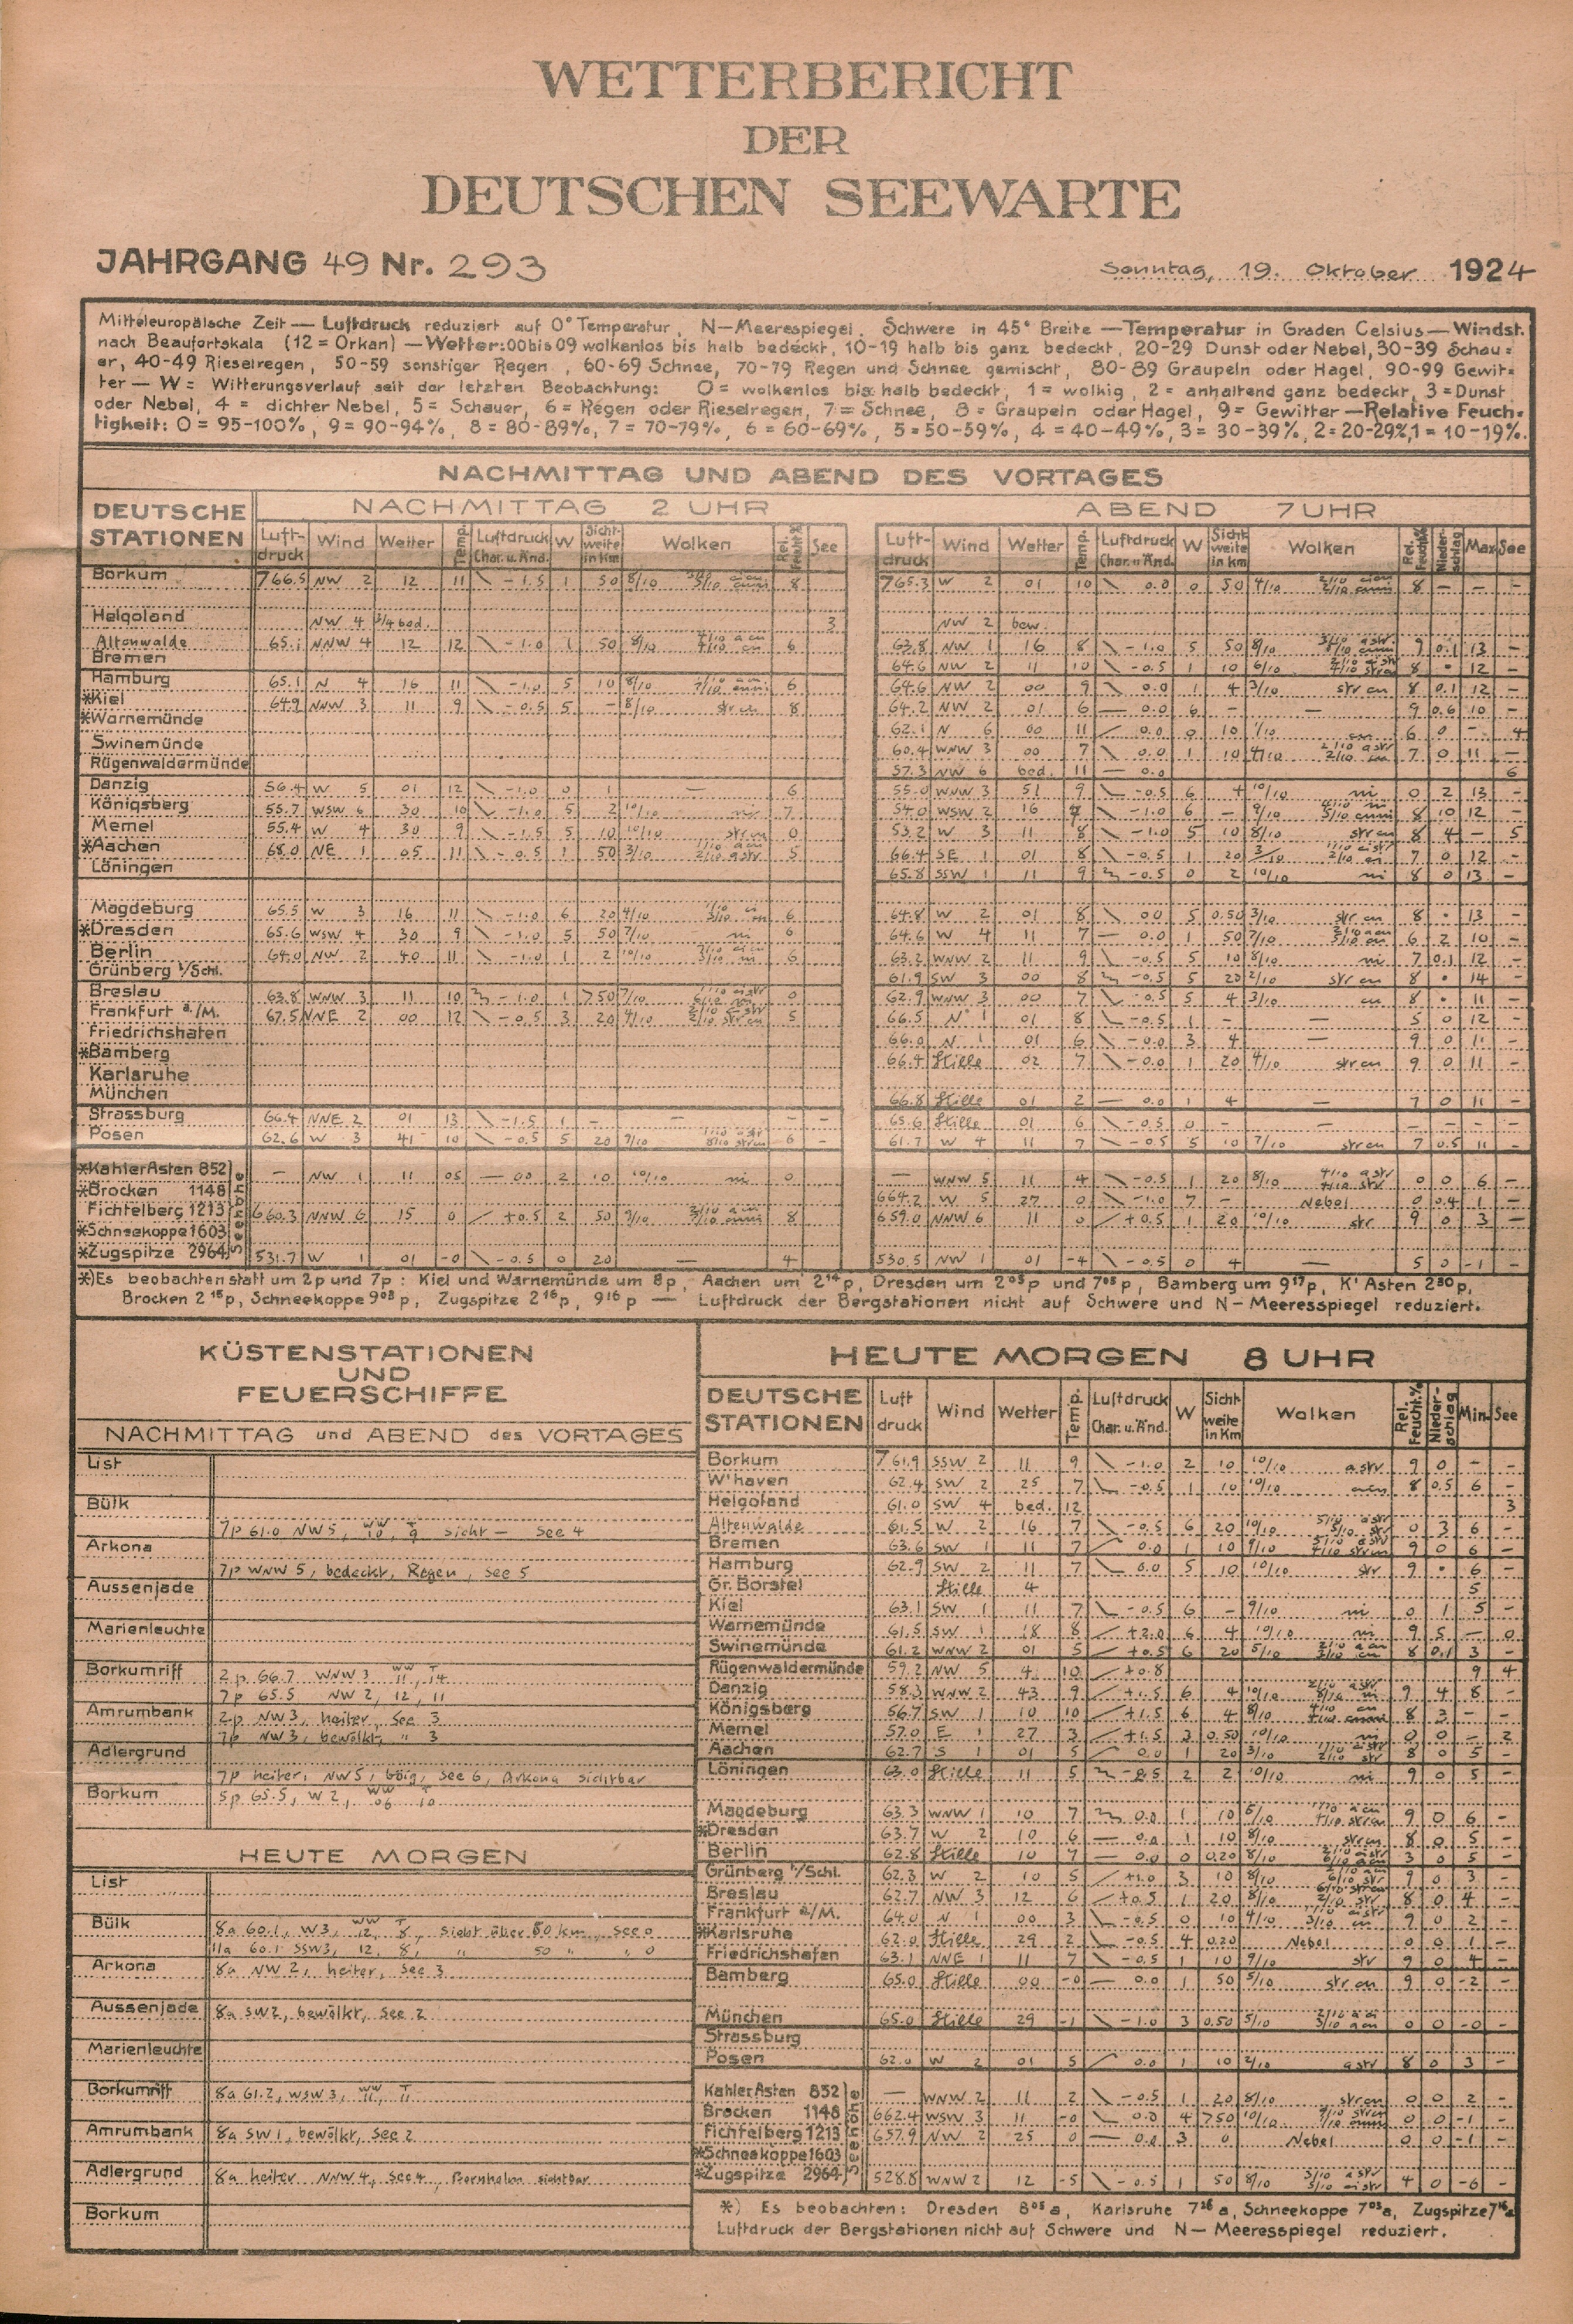 WETTERBERICHT
DER
DEUTSCHEN SEEWARTE
JAHRGANG 49 Nr. 293
Sonntag, 19. Oktober 1924
Mitteleuropäische Zeit — Luftdruck reduziert auf 0° Temperatur, N—Meerespiegel, Schwere in 45° Breite —Temperatur in Graden Celsius— Windst.
nach Beaufortskala (12 = Orkan) —Wetter: 00 bis 09 wolkenlos bis halb bedeckt, 10-19 halb bis ganz bedeckt, 20-29 Dunst oder Nebel, 30-39 Schau=
er, 40-49 Rieselregen, 50-59 sonstiger Regen, 60-69 Schnee, 70-79 Regen und Schnee gemischt, 80-89 Graupeln oder Hagel, 90-99 Gewit=
ter — W = Witterungsverlauf seit der letzten Beobachtung: 0 = wolkenlos bis halb bedeckt, 1 = wolkig, 2 = anhaltend ganz bedeckt, 3 = Dunst
oder Nebel, 4 = dichter Nebel, 5 = Schauer, 6 = Regen oder Rieselregen, 7 = Schnee, 8 = Graupeln oder Hagel, 9 = Gewitter —Relative Feuch=
tigkeit: 0 = 95-100%, 9 = 90-94%, 8 = 80-89%, 7 = 70-79%, 6 = 60-69%, 5 = 50-59%, 4 = 40-49%, 3 = 30-39%, 2 = 20-29%, 1 = 10-19%.
NACHMITTAG UND ABEND DES VORTAGES
DEUTSCHE STATIONEN
NACHMITTAG 2 UHR
ABEND 7 UHR
Luft-druck Wind Wetter Temp. Luftdruck Char. u. Änd. W Sicht-weite in km Wolken Rel. Feucht.% See
Luft-druck Wind Wetter Temp. Luftdruck Char. u. Änd. W Sicht-weite in km Wolken Rel. Feucht.% Nieder-schlag Max See
Borkum 766.5 NW 2 12 11 -1.5 1 50 8/10 8 765.3 W 2 01 10 0.0 0 50 4/10 8 — — —
Helgoland NW 4 3/4 bed. 3 NW 2 bew.
Altenwalde 65.1 NNW 4 12 12 -1.0 1 50 8/10 6 63.8 NW 1 16 8 -1.0 5 50 8/10 9 0.1 13 —
Bremen 64.6 NW 2 11 10 -0.5 1 10 6/10 8 • 12 —
Hamburg 65.1 N 4 16 11 -1.0 5 10 8/10 6 64.6 NW 2 00 9 0.0 1 4 3/10 str cu 8 0.1 12 —
*Kiel 64.9 NNW 3 11 9 -0.5 5 — 8/10 str cu 8 64.2 NW 2 01 6 — 0.0 6 — — 9 0.6 10 —
*Warnemünde 62.1 N 6 00 11 0.0 0 10 1/10 cu 6 0 — 4
Swinemünde 60.4 WNW 3 00 7 0.0 1 10 4/10 7 0 11 —
Rügenwaldermünde 57.3 NW 6 bed. 11 — 0.0 6
Danzig 56.4 W 5 01 12 -1.0 0 1 — 6 55.0 WNW 3 51 9 -0.5 6 4 10/10 ni 0 2 13 —
Königsberg 55.7 WSW 6 30 10 -1.0 5 2 10/10 ni 7 54.0 WSW 2 16 7 -1.0 6 — 9/10 8 10 12 —
Memel 55.4 W 4 30 9 -1.5 5 10 10/10 str cu 0 53.2 W 3 11 8 -1.0 5 10 8/10 str cu 8 4 — 5
*Aachen 68.0 NE 1 05 11 -0.5 1 50 3/10 5 66.4 SE 1 01 8 -0.5 1 20 3/10 7 0 12 —
Löningen 65.8 SSW 1 11 9 -0.5 0 2 10/10 ni 8 0 13 —
Magdeburg 65.5 W 3 16 11 -1.0 6 20 4/10 6 64.8 W 2 01 8 0.0 5 0.50 3/10 str cu 8 • 13 —
*Dresden 65.6 WSW 4 30 9 -1.0 5 50 7/10 ni 6 64.6 W 4 11 7 — 0.0 1 50 7/10 6 2 10 —
Berlin 64.0 NW 2 40 11 -1.0 1 2 10/10 6 63.2 WNW 2 11 9 -0.5 5 10 8/10 ni 7 0.1 12 —
Grünberg i/Schl. 61.9 SW 3 00 8 -0.5 5 20 2/10 str cu 8 • 14 —
Breslau 63.8 WNW 3 11 10 -1.0 1 >50 7/10 0 62.9 WNW 3 00 7 -0.5 5 4 3/10 cu 8 • 11 —
Frankfurt a./M. 67.5 NNE 2 00 12 -0.5 3 20 4/10 5 66.5 N 1 01 8 -0.5 1 — — 5 0 12 —
Friedrichshafen 66.0 N 1 01 6 -0.0 3 4 — 9 0 11 —
*Bamberg 66.4 Stille 02 7 -0.0 1 20 4/10 str cu 9 0 11 —
Karlsruhe
München 66.8 Stille 01 2 — 0.0 1 4 — 7 0 11 —
Strassburg 66.4 NNE 2 01 13 -1.5 1 — — — — 65.6 Stille 01 6 -0.5 0 — — — — — —
Posen 62.6 W 3 41 10 -0.5 5 20 9/10 6 — 61.7 W 4 11 7 -0.5 5 10 7/10 str cu 7 0.5 11 —
Seehöhe
*Kahler Asten 852 — NW 1 11 05 — 00 2 10 10/10 ni 0 — WNW 5 11 4 -0.5 1 20 8/10 0 0 6 —
*Brocken 1148 664.2 W 5 27 0 -1.0 7 — Nebel 0 0.4 1 —
Fichtelberg 1213 660.3 NNW 6 15 0 +0.5 2 50 9/10 8 659.0 NNW 6 11 0 +0.5 1 20 10/10 str 9 0 3 —
*Schneekoppe 1603
*Zugspitze 2964 531.7 W 1 01 -0 -0.5 0 20 — 4 530.5 NW 1 01 -4 -0.5 0 4 — 5 0 -1 —
*) Es beobachten statt um 2p und 7p: Kiel und Warnemünde um 8p, Aachen um 2¹⁴p, Dresden um 2⁰⁵p und 7⁰⁵p, Bamberg um 9¹⁷p, K' Asten 2³⁰p,
Brocken 2¹⁵p, Schneekoppe 9⁰³p, Zugspitze 2¹⁶p, 9¹⁶p — Luftdruck der Bergstationen nicht auf Schwere und N—Meeresspiegel reduziert.
KÜSTENSTATIONEN
UND
FEUERSCHIFFE
NACHMITTAG und ABEND des VORTAGES
List
Bülk
7p 61.0 NW 5, WW 10, T 9 Sicht — See 4
Arkona
7p WNW 5, bedeckt, Regen, See 5
Aussenjade
Marienleuchte
Borkumriff 2p 66.7 WNW 3 WW 11, T 14
7p 65.5 NW 2, 12, 11
Amrumbank 2p NW 3, heiter, See 3
7p NW 3, bewölkt, " 3
Adlergrund
7p heiter, NW 5, böig, See 6, Arkona sichtbar
Borkum 5p 65.5, W 2, WW 06 T 10
HEUTE MORGEN
List
Bülk 8a 60.1, W 3, WW 12, T 8, Sicht über 50 km, See 0
11a 60.1 SSW 3, 12, 8, " 50 " " 0
Arkona 8a NW 2, heiter, See 3
Aussenjade 8a SW 2, bewölkt, See 2
Marienleuchte
Borkumriff 8a 61.2, WSW 3, WW 11, T 11
Amrumbank 8a SW 1, bewölkt, See 2
Adlergrund 8a heiter NNW 4, See 4, Bornholm sichtbar
Borkum
HEUTE MORGEN 8 UHR
DEUTSCHE STATIONEN Luft druck Wind Wetter Temp. Luftdruck Char. u. Änd. W Sicht-weite in Km Wolken Rel. Feucht.% Nieder-schlag Min. See
Borkum 761.9 SSW 2 11 9 -1.0 2 10 10/10 a str 9 0 — —
W'haven 62.4 SW 2 25 7 -0.5 1 10 10/10 8 0.5 6 —
Helgoland 61.0 SW 4 bed. 12 3
Altenwalde 61.5 W 2 16 7 -0.5 6 20 10/10 0 3 6 —
Bremen 63.6 SW 1 11 7 0.0 1 10 9/10 9 0 6 —
Hamburg 62.9 SW 2 11 7 0.0 5 10 10/10 str 9 • 6 —
Gr. Borstel Stille 4 5
Kiel 63.1 SW 1 11 7 -0.5 6 — 9/10 ni 0 1 5 —
Warnemünde 61.5 SW 1 18 8 +2.0 6 4 10/10 ni 9 5 — 0
Swinemünde 61.2 WNW 2 01 5 +0.5 6 20 5/10 8 0.1 3 —
Rügenwaldermünde 59.2 NW 5 4 10 +0.8 9 4
Danzig 58.3 WNW 2 43 9 +1.5 6 4 10/10 9 4 8 —
Königsberg 56.7 SW 1 10 10 +1.5 6 4 8/10 8 3 — —
Memel 57.0 E 1 27 3 +1.5 3 0.50 10/10 ni 0 0 — 2
Aachen 62.7 S 1 01 5 0.0 1 20 3/10 8 0 5 —
Löningen 63.0 Stille 11 5 -0.5 2 2 10/10 ni 9 0 5 —
Magdeburg 63.3 WNW 1 10 7 0.0 1 10 5/10 9 0 6 —
*Dresden 63.7 W 2 10 6 — 0.0 1 10 8/10 str cu 8 0 5 —
Berlin 62.8 Stille 10 7 — 0.0 0 0.20 8/10 3 0 5 —
Grünberg i/Schl. 62.3 W 2 10 5 +1.0 3 10 8/10 9 0 3 —
Breslau 62.7 NW 3 12 6 +0.5 1 20 8/10 8 0 4 —
Frankfurt a/M. 64.0 N 1 00 3 -0.5 0 10 4/10 9 0 2 —
*Karlsruhe 62.0 Stille 29 2 -0.5 4 0.20 Nebel 0 0 1 —
Friedrichshafen 63.1 NNE 1 11 7 -0.5 1 10 9/10 str 9 0 4 —
Bamberg 65.0 Stille 00 -0 — 0.0 1 50 5/10 str cu 9 0 -2 —
München 65.0 Stille 29 -1 -1.0 3 0.50 5/10 0 0 -0 —
Strassburg
Posen 62.0 W 2 01 5 0.0 1 10 2/10 a str 8 0 3 —
Seehöhe
Kahler Asten 852 — WNW 2 11 2 -0.5 1 20 8/10 str cu 0 0 2 —
Brocken 1148 662.4 WSW 3 11 -0 0.0 4 >50 10/10 0 0 -1 —
Fichtelberg 1213 657.9 NW 2 25 0 — 0.0 3 0 Nebel 0 0 -1 —
*Schneekoppe 1603
*Zugspitze 2964 528.8 WNW 2 12 -5 -0.5 1 50 8/10 4 0 -6 —
*) Es beobachten: Dresden 8⁰⁵a, Karlsruhe 7²⁶a, Schneekoppe 7⁰³a, Zugspitze 7¹⁶a
Luftdruck der Bergstationen nicht auf Schwere und N—Meeresspiegel reduziert.